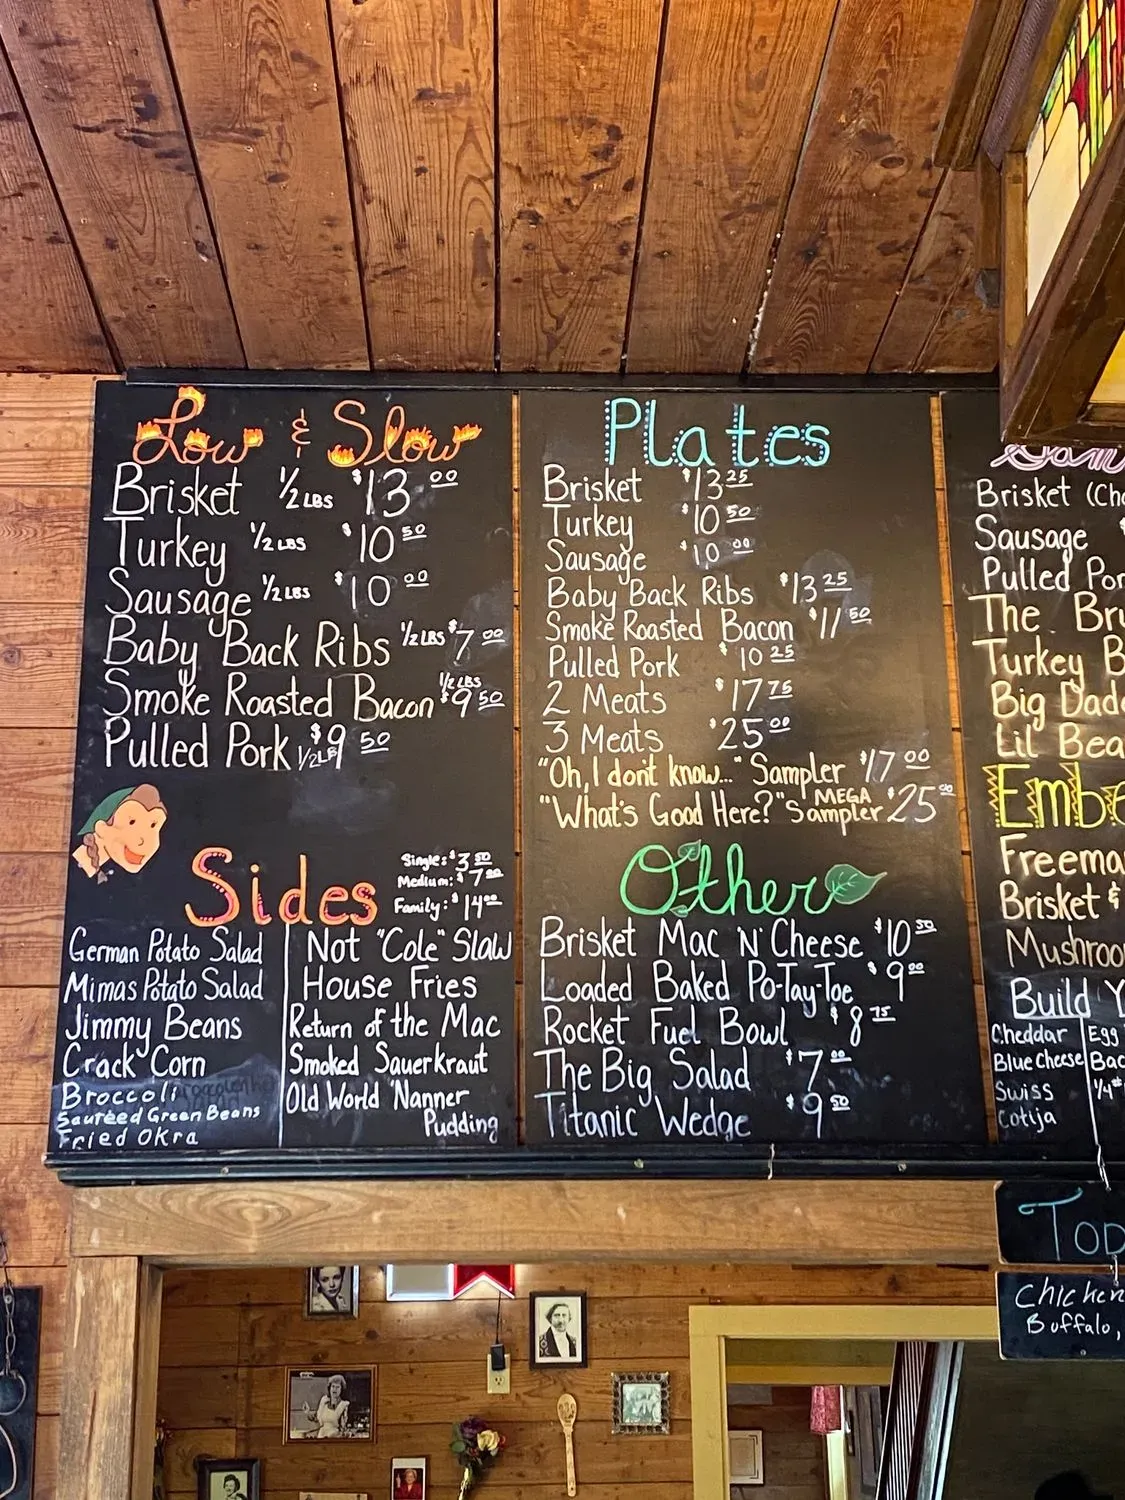 Low & Slow
Brisket 1/2 LBS $13.00
Turkey 1/2 LBS $10.50
Sausage 1/2 LBS $10.00
Baby Back Ribs 1/2 LBS $7.00
Smoke Roasted Bacon 1/2 LBS $9.50
Pulled Pork 1/2 LBS $9.50
Sides
Single: $3.50
Medium: $7.00
Family: $14.00
German Potato Salad
Mimas Potato Salad
Jimmy Beans
Crack Corn
Broccoli
Sauteéd Green Beans
Fried Okra
Not "Cole" Slaw
House Fries
Return of the Mac
Smoked Sauerkraut
Old World 'Nanner
Pudding
Plates
Brisket $13.25
Turkey $10.50
Sausage $10.00
Baby Back Ribs $13.25
Smoke Roasted Bacon $11.50
Pulled Pork $10.25
2 Meats $17.75
3 Meats $25.00
"Oh, I don't know..." Sampler $17.00
"What's Good Here?" MEGA Sampler $25.00
Other
Brisket Mac 'N' Cheese $10.50
Loaded Baked Po-Tay-Toe $9.00
Rocket Fuel Bowl $8.75
The Big Salad $7.00
Titanic Wedge $9.50
Brisket (Ch
Sausage $
Pulled Por
The Br
Turkey B
Big Dad
Lil Bea
Embe
Freema
Brisket &
Mushroo
Build Y
Cheddar
Blue Cheese
Swiss
Cotija
Egg
Bac
1/4#
Tod
Chicken
Buffalo,